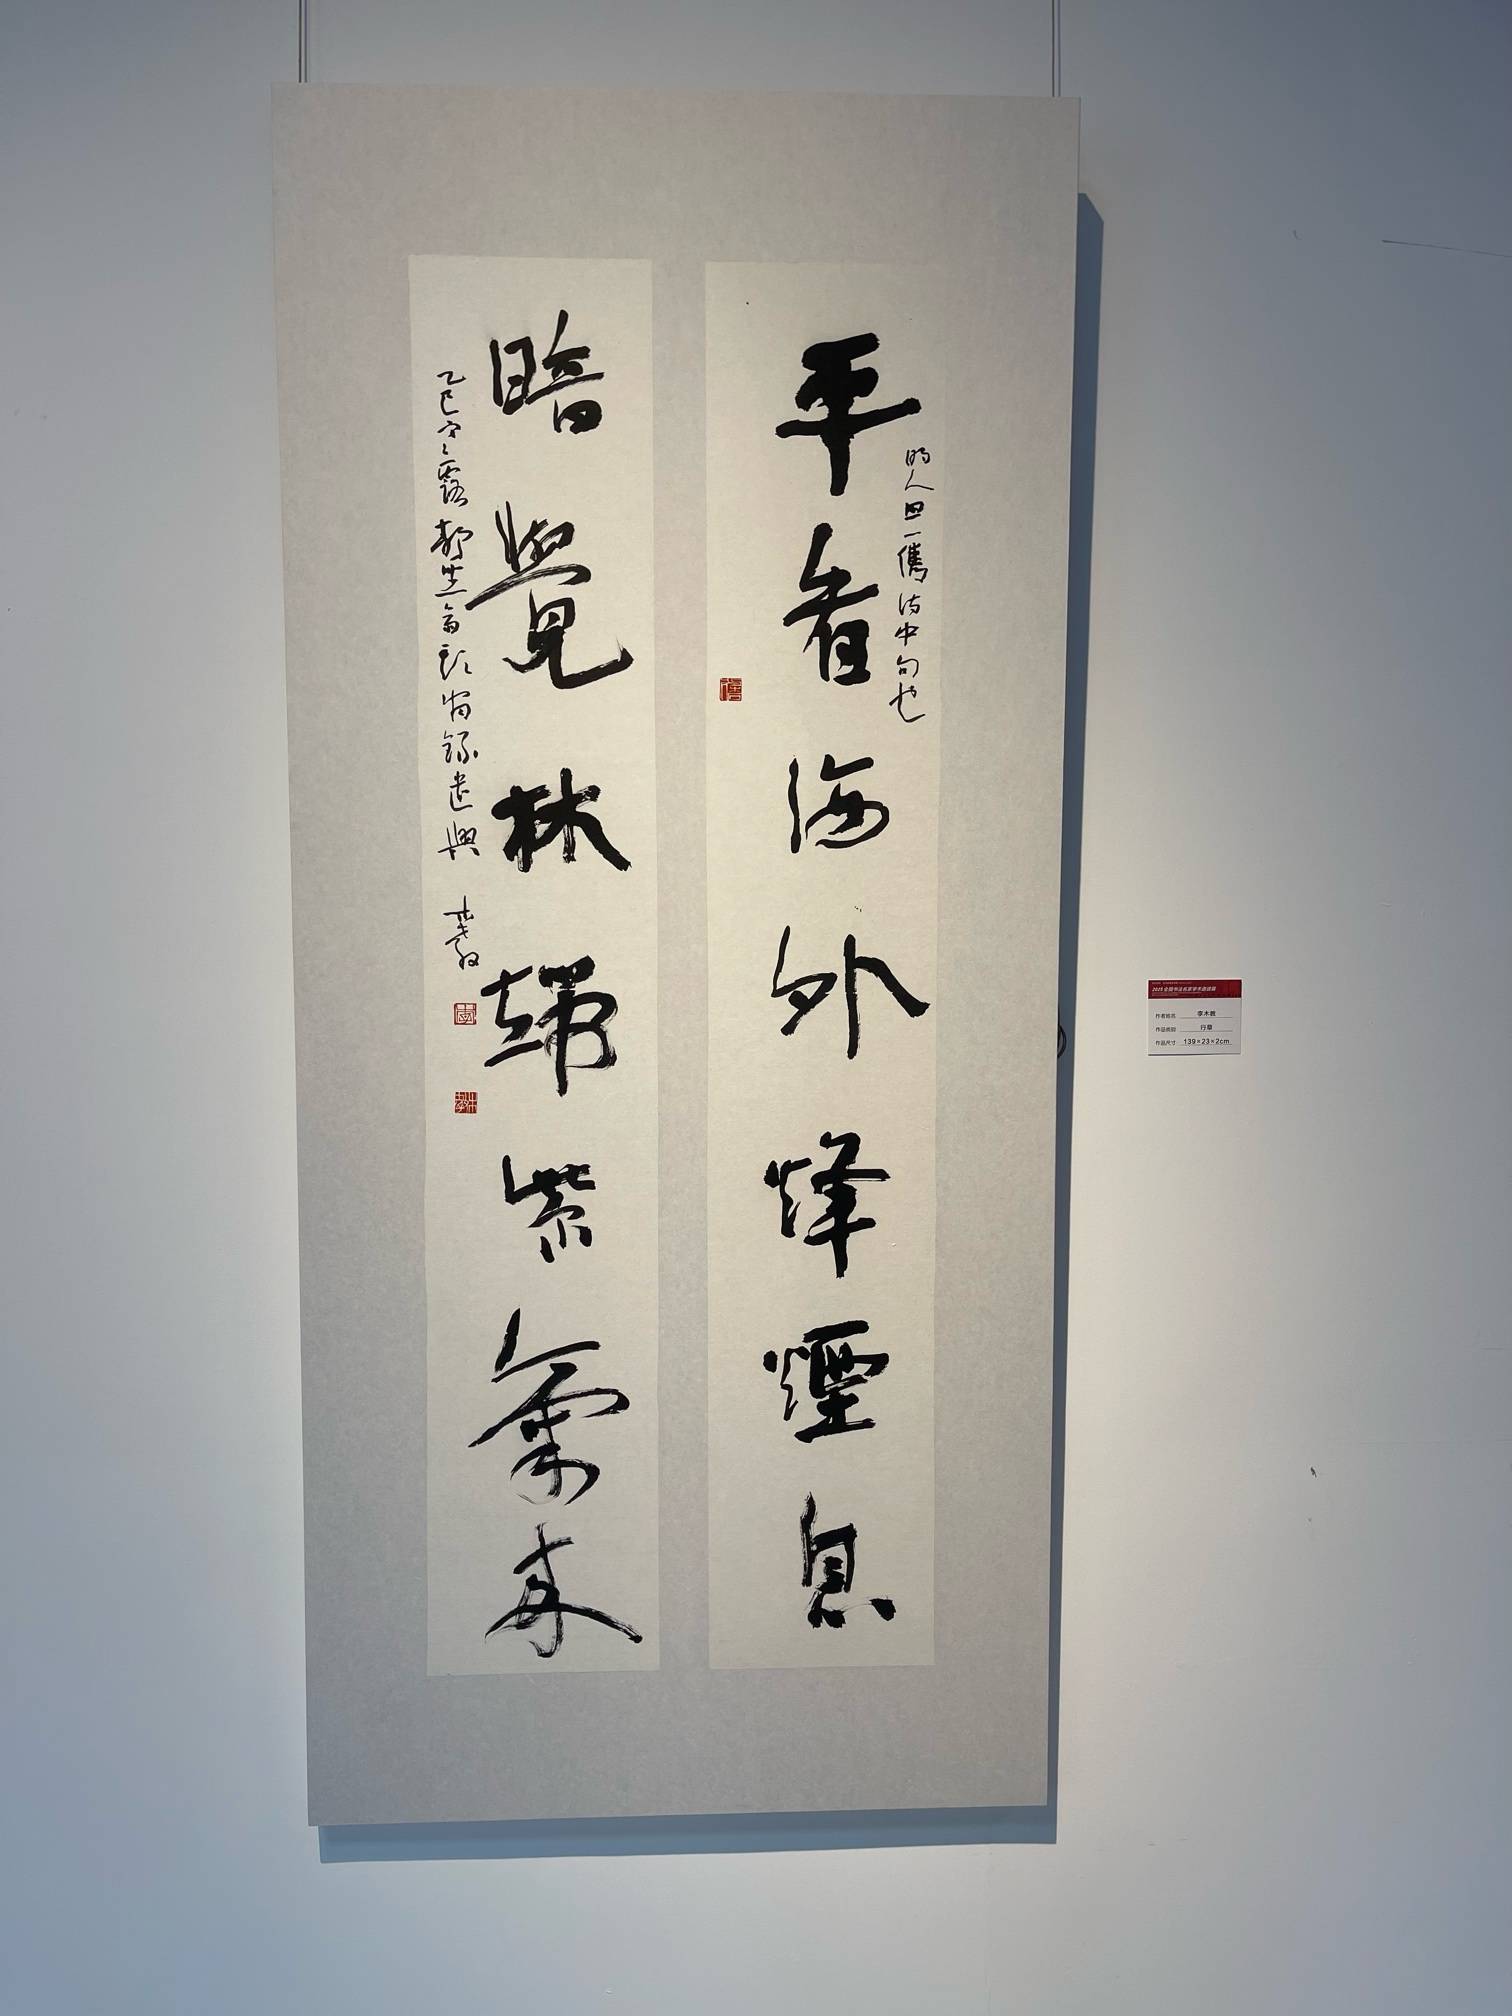 平看海外烽煙息
明人田一儁詩中句也
暗覺林端紫氣來
乙巳寒露 錄遣興 木教
2025全国书法名家学术邀请展
作者姓名 李木教
作品类别 行草
作品尺寸 139×23×2cm